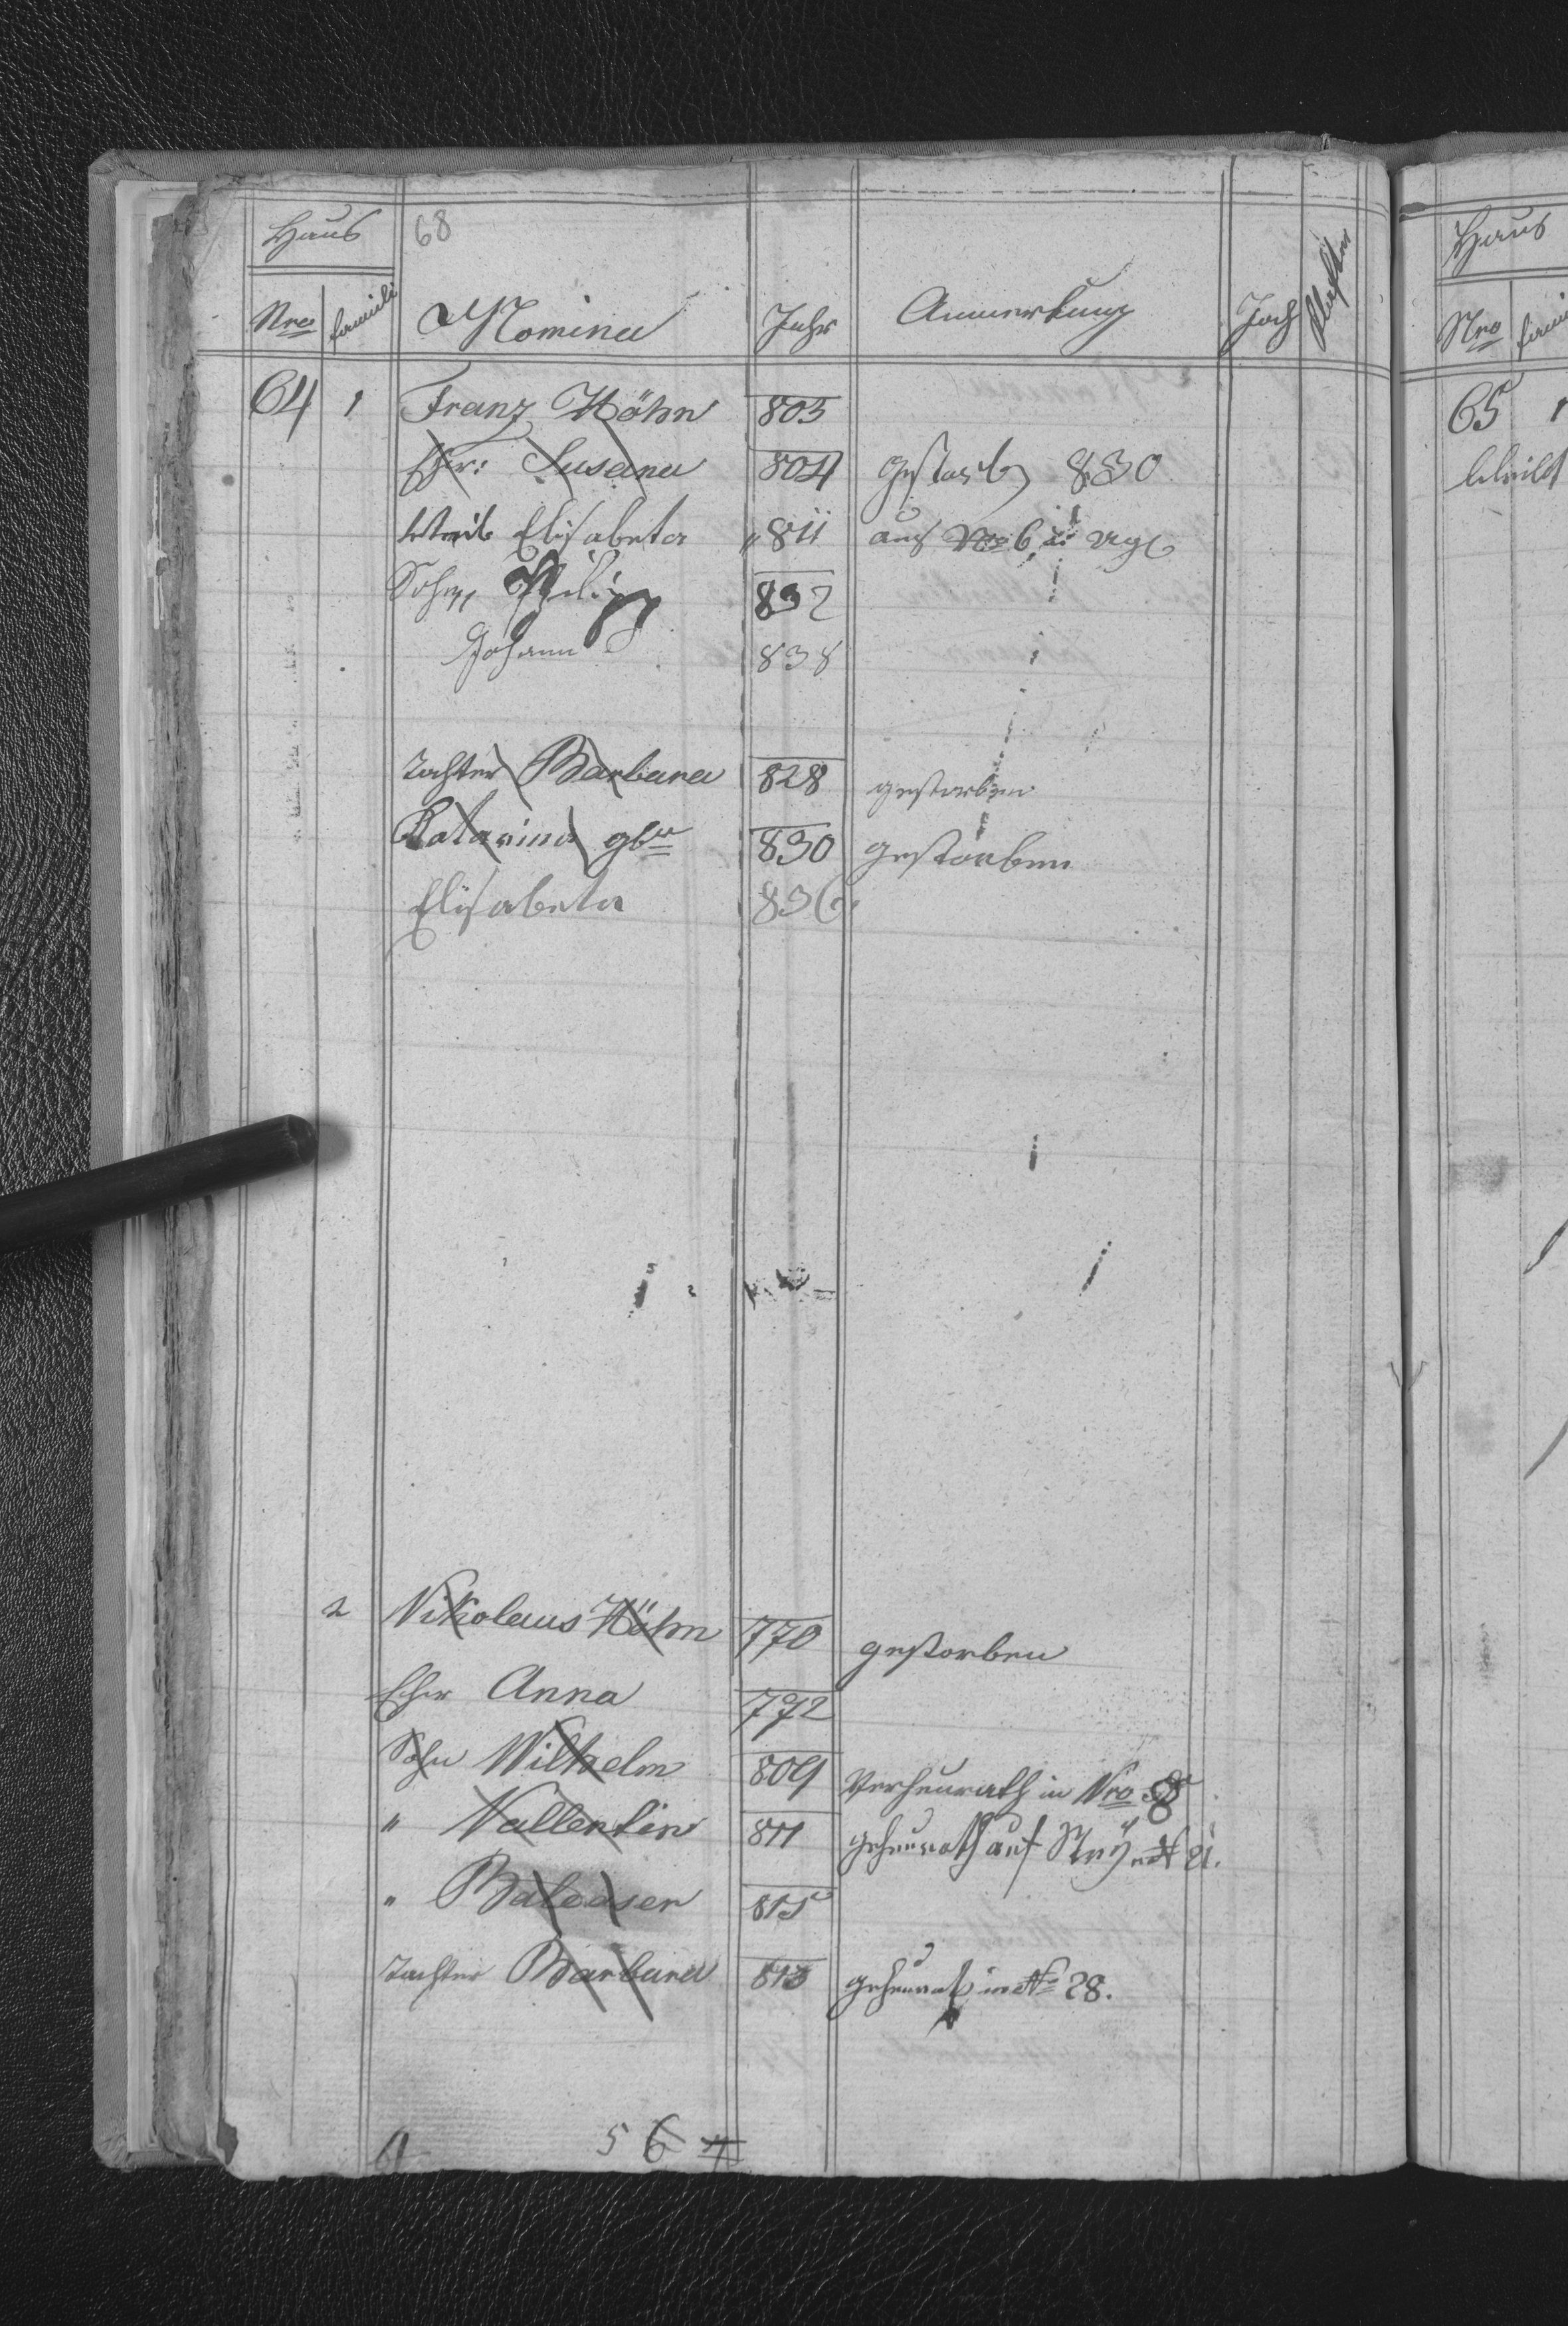 Haus 68
Nro famili Nomina Jahr Anmerkung Joch
64 1 Franz Höhn 805
Ehr: Susana 804 gestorb 830
Weib Elisabeta " 811 aus Nro 6
Sohn Philip 832
Johann 838
Tochter Barbara 828 gestorben
Katarina gbr 830 gestorben
Elisabeta 836
2 Nikolaus Höhn 770 gestorben
Eher Anna 772
Sohn Wilhelm 809 Verheurath in Nro
" Vallentin 811 geheurath auf No 21.
" Baltaser 815
Tochter Barbara 813 geheurath in No 28.
5 6 7
Haus
Nro
65 1